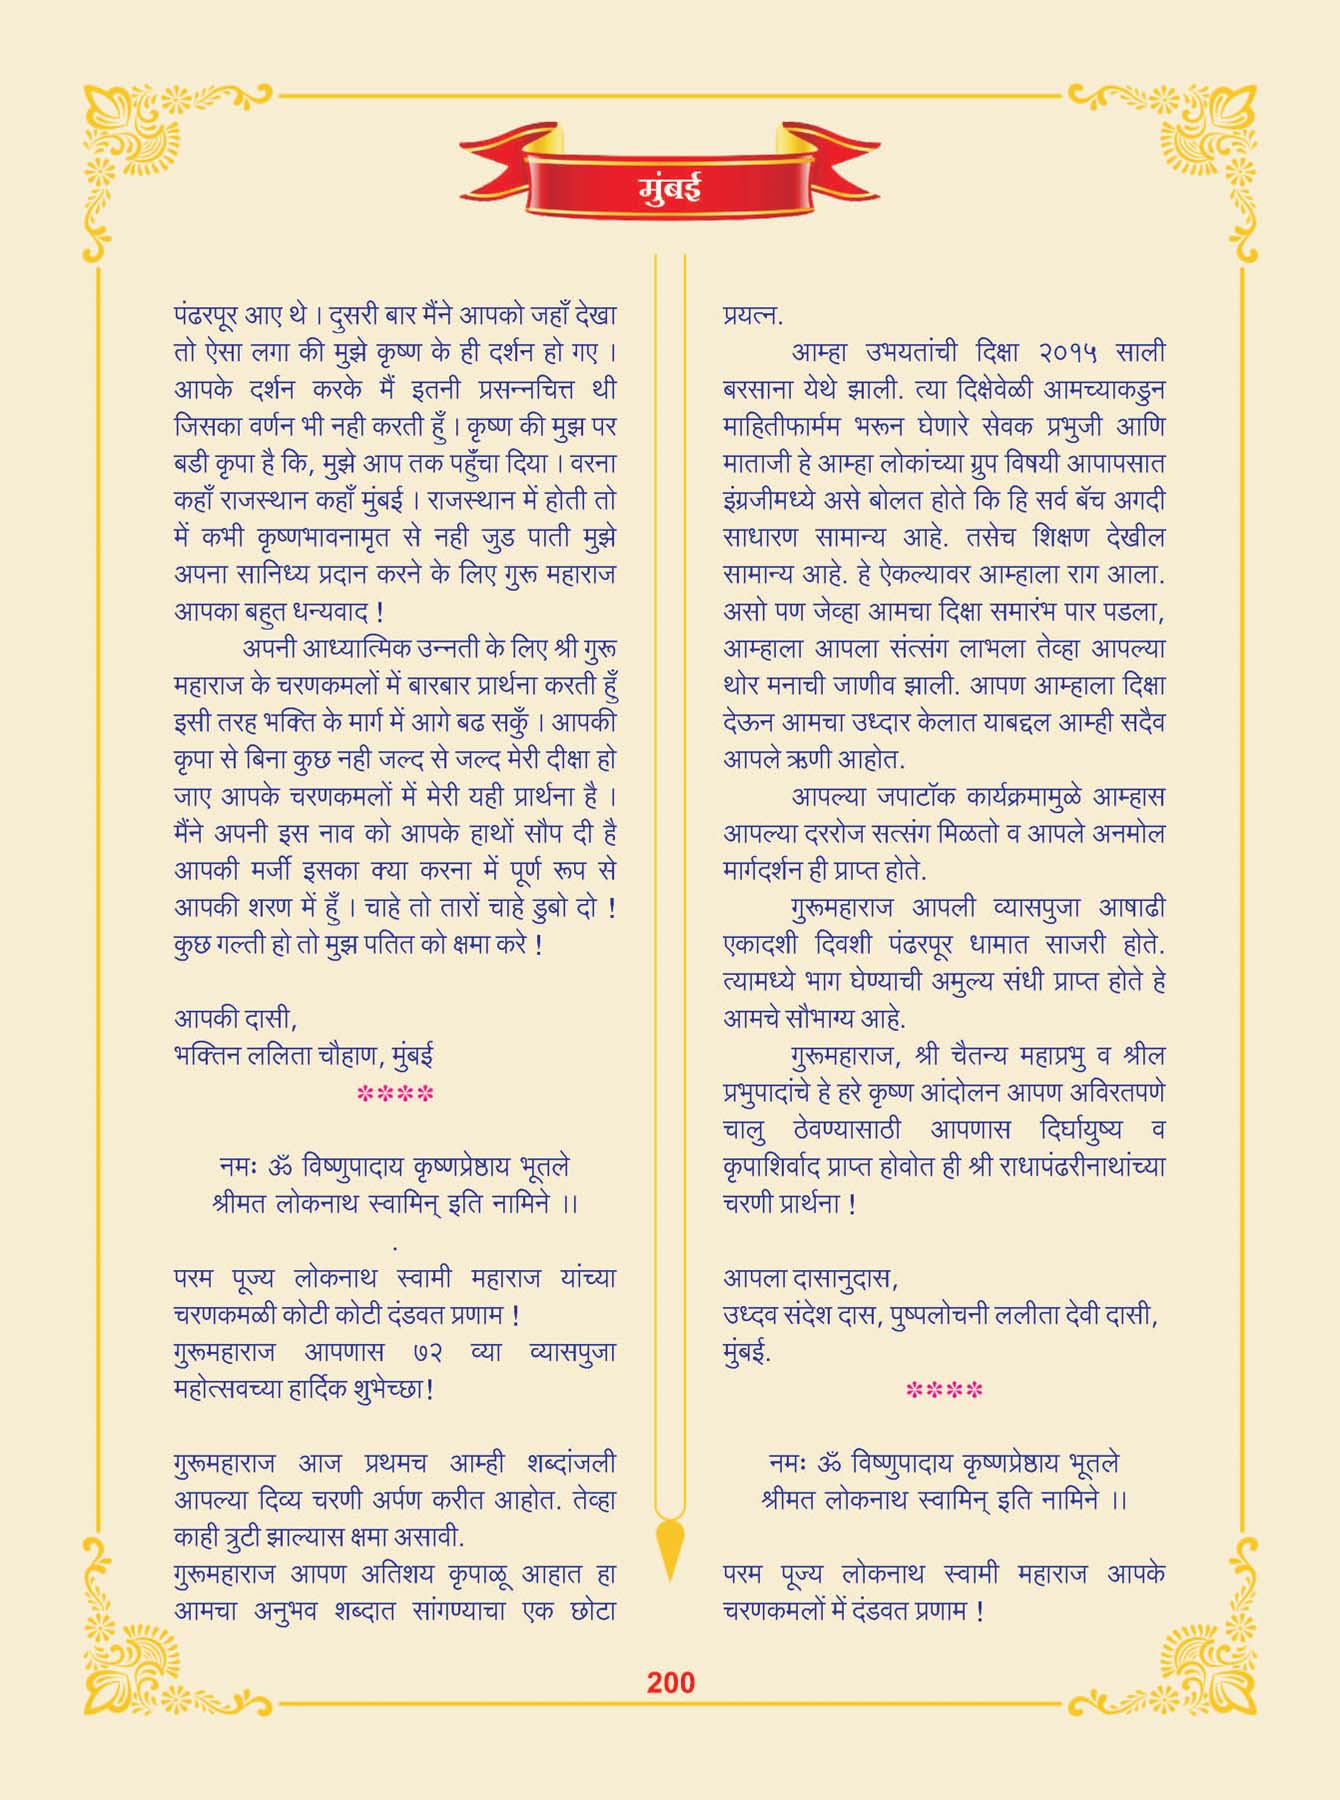 मुंबई
पंढरपूर आए थे । दुसरी बार मैंने आपको जहाँ देखा
तो ऐसा लगा की मुझे कृष्ण के ही दर्शन हो गए ।
आपके दर्शन करके मैं इतनी प्रसन्नचित्त थी
जिसका वर्णन भी नही करती हुँ । कृष्ण की मुझ पर
बडी कृपा है कि, मुझे आप तक पहुँचा दिया । वरना
कहाँ राजस्थान कहाँ मुंबई । राजस्थान में होती तो
में कभी कृष्णभावनामृत से नही जुड पाती मुझे
अपना सानिध्य प्रदान करने के लिए गुरू महाराज
आपका बहुत धन्यवाद !
अपनी आध्यात्मिक उन्नती के लिए श्री गुरू
महाराज के चरणकमलों में बारबार प्रार्थना करती हुँ
इसी तरह भक्ति के मार्ग में आगे बढ सकुँ । आपकी
कृपा से बिना कुछ नही जल्द से जल्द मेरी दीक्षा हो
जाए आपके चरणकमलों में मेरी यही प्रार्थना है ।
मैंने अपनी इस नाव को आपके हाथों सौप दी है
आपकी मर्जी इसका क्या करना में पूर्ण रूप से
आपकी शरण में हुँ । चाहे तो तारों चाहे डुबो दो !
कुछ गल्ती हो तो मुझ पतित को क्षमा करे !
आपकी दासी,
भक्तिन ललिता चौहाण, मुंबई
****
नमः ॐ विष्णुपादाय कृष्णप्रेष्ठाय भूतले
श्रीमत लोकनाथ स्वामिन् इति नामिने ।।
.
परम पूज्य लोकनाथ स्वामी महाराज यांच्या
चरणकमळी कोटी कोटी दंडवत प्रणाम !
गुरूमहाराज आपणास ७२ व्या व्यासपुजा
महोत्सवच्या हार्दिक शुभेच्छा!
गुरूमहाराज आज प्रथमच आम्ही शब्दांजली
आपल्या दिव्य चरणी अर्पण करीत आहोत. तेव्हा
काही त्रुटी झाल्यास क्षमा असावी.
गुरूमहाराज आपण अतिशय कृपाळू आहात हा
आमचा अनुभव शब्दात सांगण्याचा एक छोटा
प्रयत्न.
आम्हा उभयतांची दिक्षा २०१५ साली
बरसाना येथे झाली. त्या दिक्षेवेळी आमच्याकडुन
माहितीफार्मम भरून घेणारे सेवक प्रभुजी आणि
माताजी हे आम्हा लोकांच्या ग्रुप विषयी आपापसात
इंग्रजीमध्ये असे बोलत होते कि हि सर्व बॅच अगदी
साधारण सामान्य आहे. तसेच शिक्षण देखील
सामान्य आहे. हे ऐकल्यावर आम्हाला राग आला.
असो पण जेव्हा आमचा दिक्षा समारंभ पार पडला,
आम्हाला आपला संत्संग लाभला तेव्हा आपल्या
थोर मनाची जाणीव झाली. आपण आम्हाला दिक्षा
देऊन आमचा उध्दार केलात याबद्दल आम्ही सदैव
आपले ऋणी आहोत.
आपल्या जपाटॉक कार्यक्रमामुळे आम्हास
आपल्या दररोज सत्संग मिळतो व आपले अनमोल
मार्गदर्शन ही प्राप्त होते.
गुरूमहाराज आपली व्यासपुजा आषाढी
एकादशी दिवशी पंढरपूर धामात साजरी होते.
त्यामध्ये भाग घेण्याची अमुल्य संधी प्राप्त होते हे
आमचे सौभाग्य आहे.
गुरूमहाराज, श्री चैतन्य महाप्रभु व श्रील
प्रभुपादांचे हे हरे कृष्ण आंदोलन आपण अविरतपणे
चालु ठेवण्यासाठी आपणास दिर्घायुष्य व
कृपाशिर्वाद प्राप्त होवोत ही श्री राधापंढरीनाथांच्या
चरणी प्रार्थना !
आपला दासानुदास,
उध्दव संदेश दास, पुष्पलोचनी ललीता देवी दासी,
मुंबई.
****
नमः ॐ विष्णुपादाय कृष्णप्रेष्ठाय भूतले
श्रीमत लोकनाथ स्वामिन् इति नामिने ।।
परम पूज्य लोकनाथ स्वामी महाराज आपके
चरणकमलों में दंडवत प्रणाम !
200